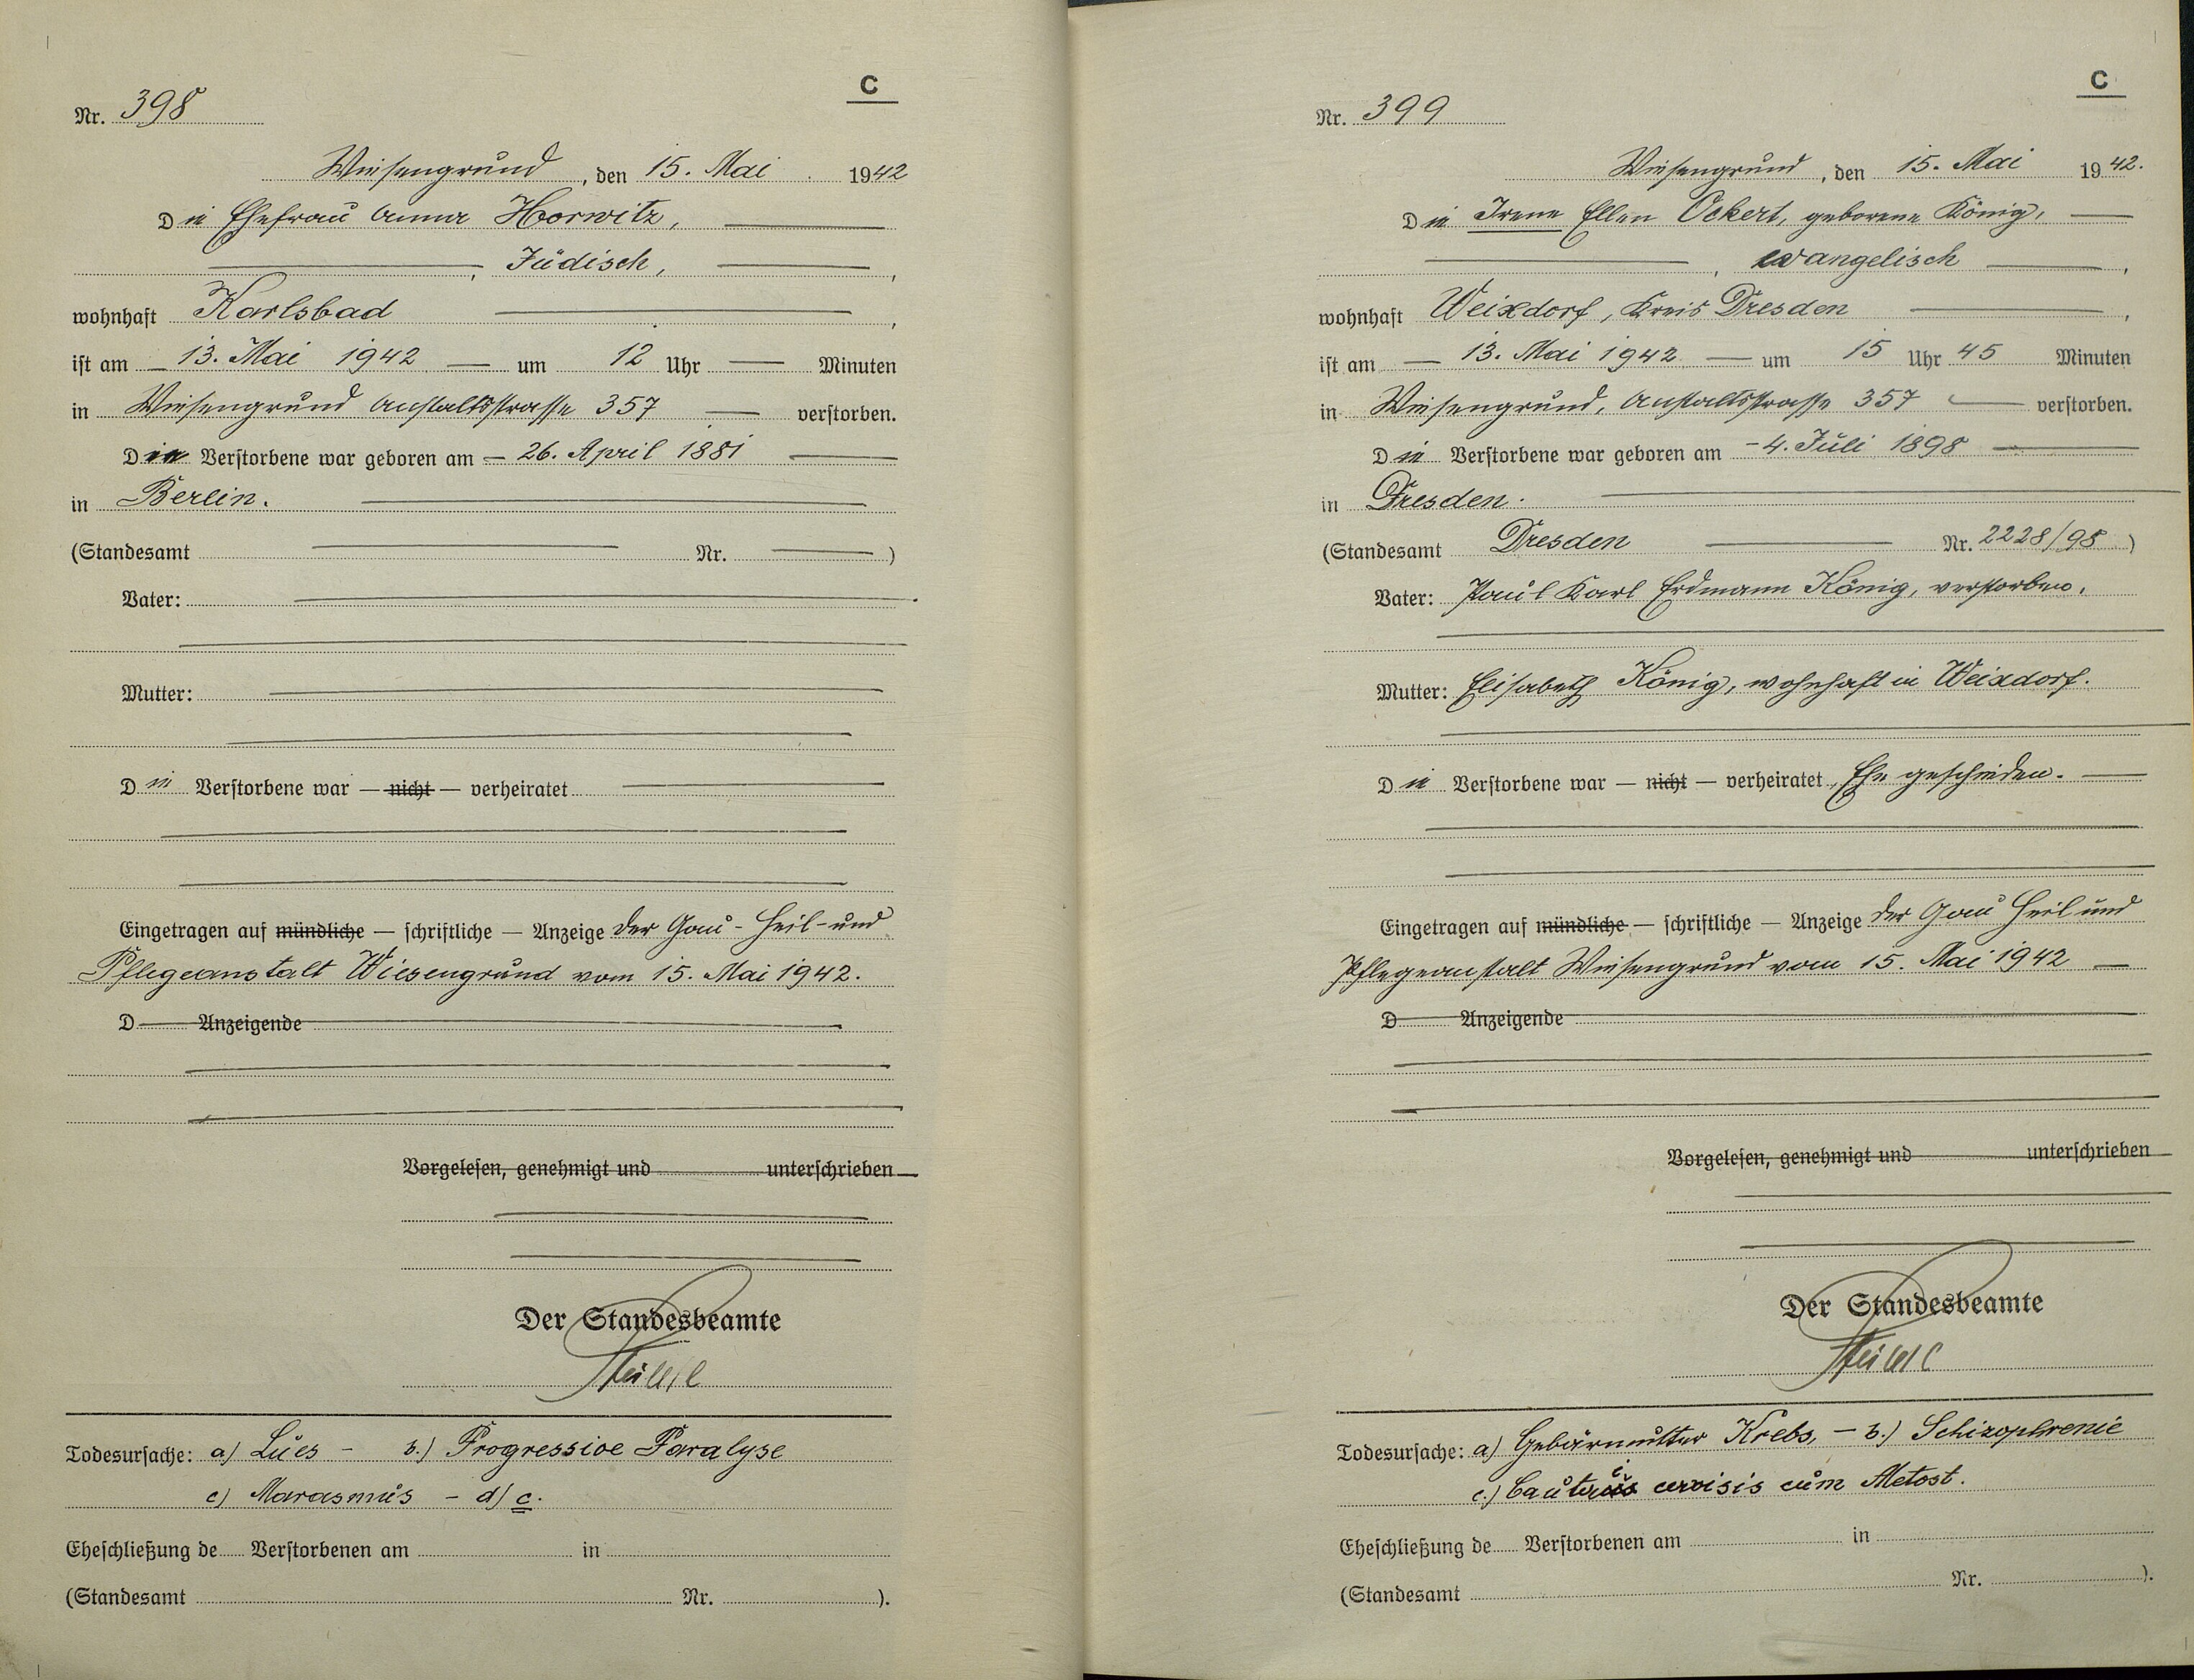 C
Nr. 398
Wiesengrund, den 15. Mai 1942
Die Ehefrau Anna Horwitz,
Jüdisch,
wohnhaft Karlsbad
ist am 13. Mai 1942 um 12 Uhr Minuten
in Wiesengrund Anstaltsstrasse 357 verstorben.
Die Verstorbene war geboren am 26. April 1881
in Berlin.
(Standesamt Nr. )
Vater:
Mutter:
Die Verstorbene war — nicht — verheiratet
Eingetragen auf mündliche — schriftliche — Anzeige der Gau-Heil-und
Pflegeanstalt Wiesengrund vom 15. Mai 1942.
D Anzeigende
Vorgelesen, genehmigt und unterschrieben
Der Standesbeamte
Todesursache: a) Lues - b.) Progressive Paralyse
c) Marasmus - d) c.
Eheschließung de Verstorbenen am in
(Standesamt Nr. ).
C
Nr. 399
Wiesengrund, den 15. Mai 1942.
Die Irene Ellen Ockert, geborene König,
evangelisch
wohnhaft Weixdorf, Kreis Dresden
ist am 13. Mai 1942 um 15 Uhr 45 Minuten
in Wiesengrund, Anstaltsstrasse 357 verstorben.
Die Verstorbene war geboren am 4. Juli 1898
in Dresden.
(Standesamt Dresden Nr. 2228/98)
Vater: Paul Karl Erdmann König, verstorben.
Mutter: Elisabeth König, wohnhaft in Weixdorf.
Die Verstorbene war — nicht — verheiratet, Ehe geschieden.
Eingetragen auf mündliche — schriftliche — Anzeige der Gau Heil und
Pflegeanstalt Wiesengrund vom 15. Mai 1942
D Anzeigende
Vorgelesen, genehmigt und unterschrieben
Der Standesbeamte
Todesursache: a) Gebärmutter Krebs, - b.) Schizophrenie
c.) cervisis cum Metost.
Eheschließung de Verstorbenen am in
(Standesamt Nr. ).